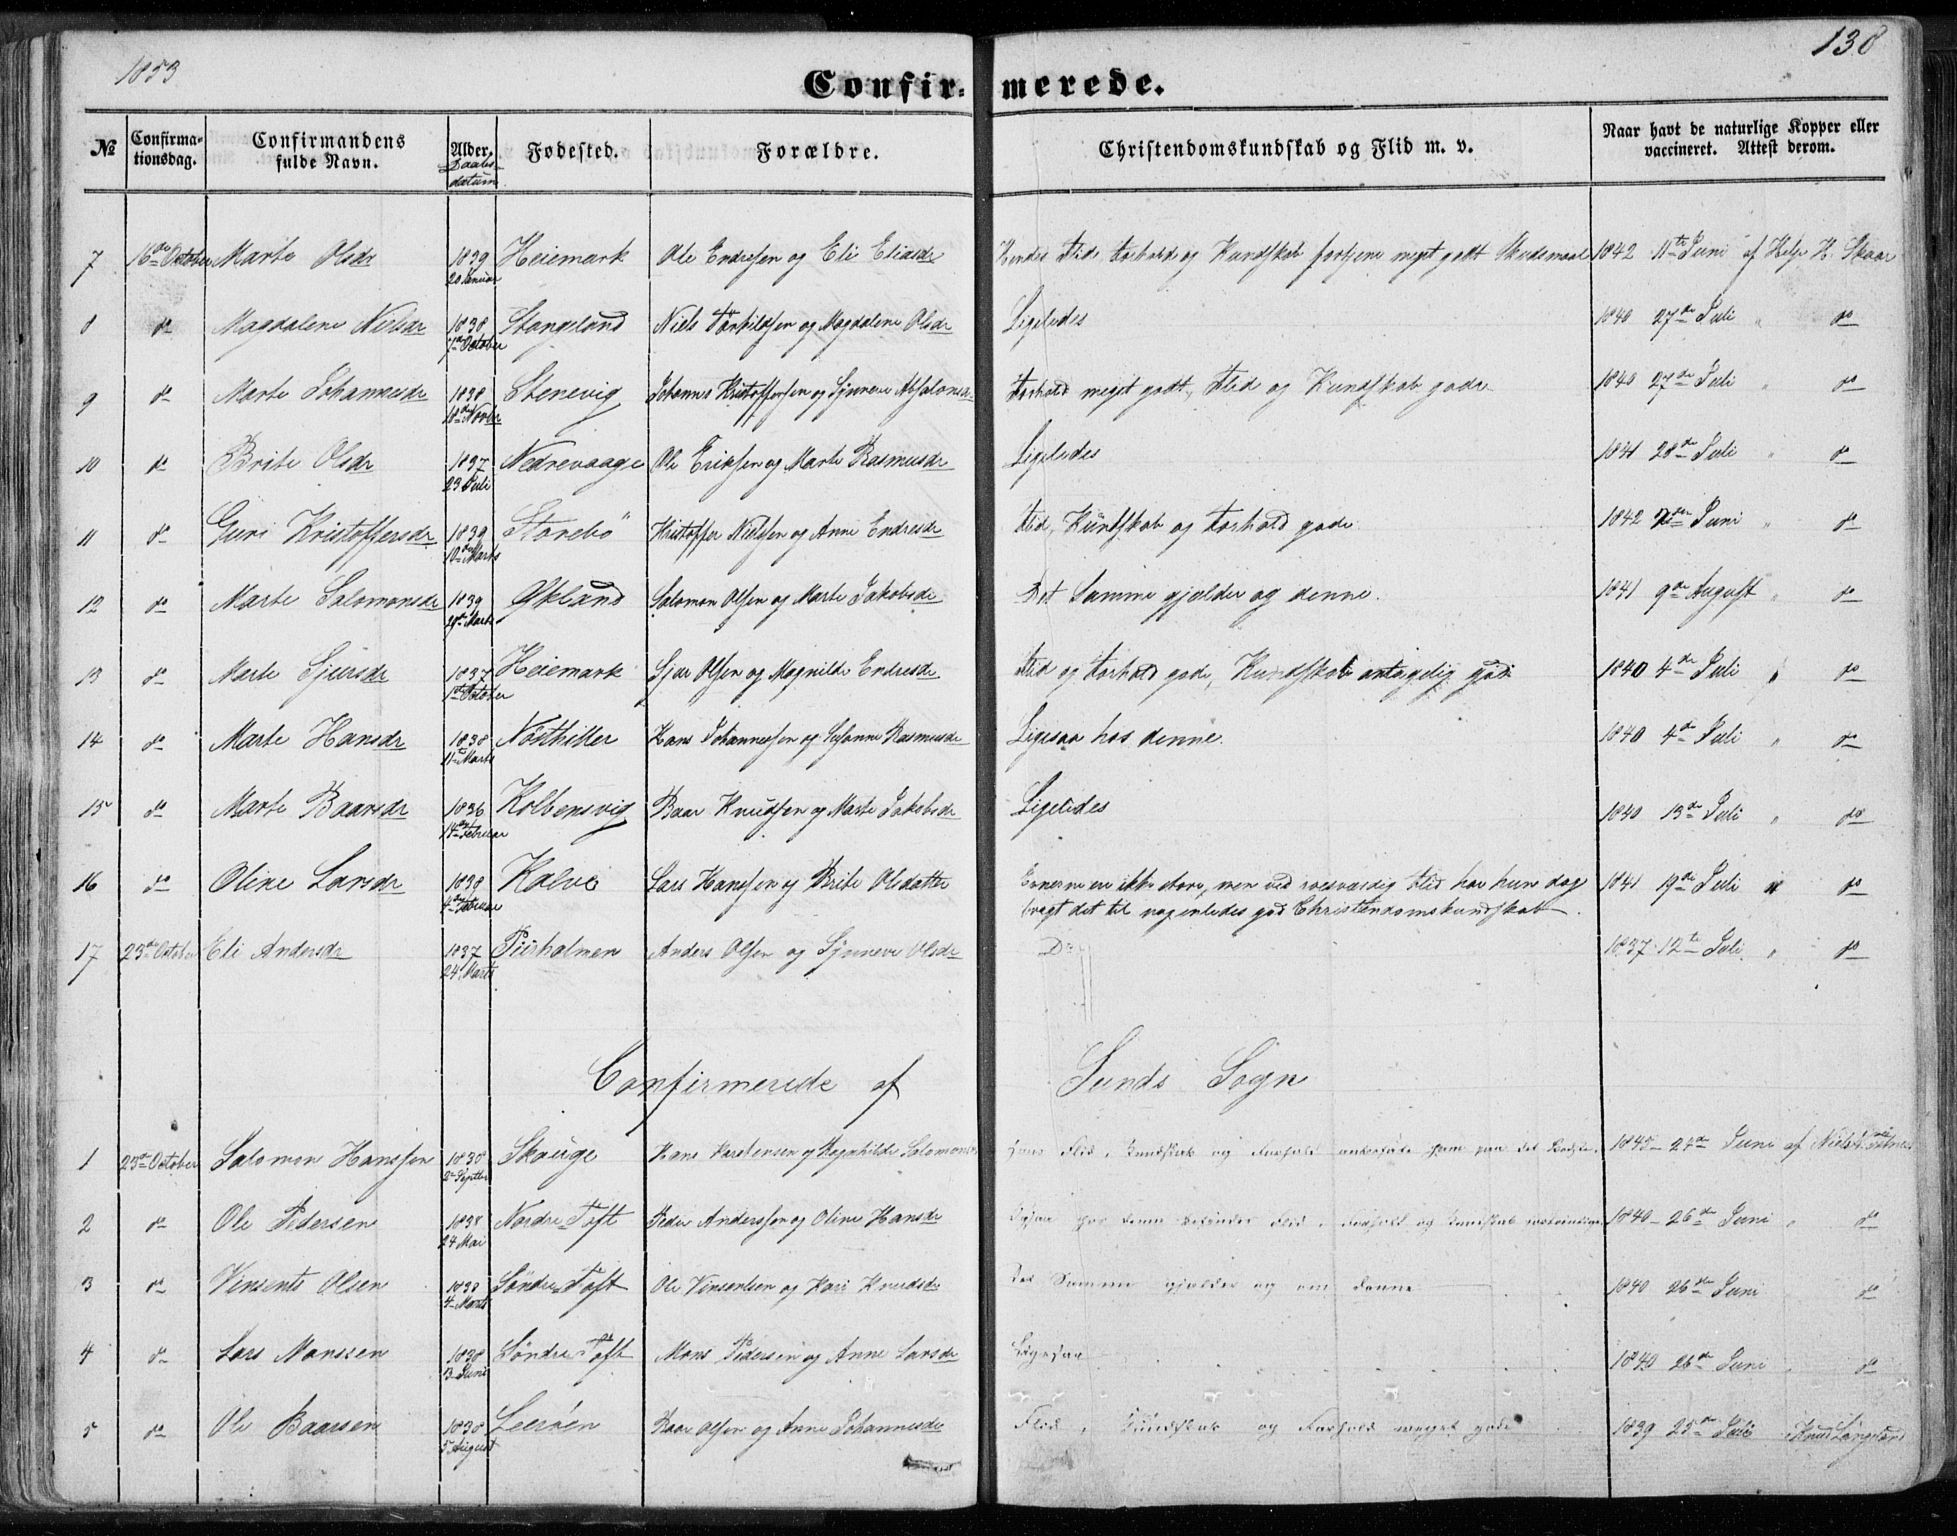 1853
138
Confirmerede.
No Confirmationsdag. Confirmandens fulde Navn. Alder. Daabsdatum. Fødested. Forældre. Christendomskundskab og Flid m. v. Naar havt de naturlige Kopper eller vaccineret. Attest derom.
7 16de October Marte Olsdr 1839 20 Januar Heiemark Ole Endresen og Eli Eliasdr Hendes Flid, Forhold og Kundskab fortjene meget godt Skudsmaal 1842 11te Juni af Helje H. Skaar
8 do Magdalene Nielsdr 1838 7de October Stangeland Niels Torkildsen og Magdalene Olsdr Ligeledes 1840 27de Juli " do
9 do Marte Johannesdr 1838 18de Novbr Stenevig Johannes Kristoffersen og Synneve Absalonsdr Forhold meget godt, Flid og Kundskab gode 1840 27de Juli " do
10 do Brite Olsdr 1837 23 Juli Nedrevaage Ole Eriksen og Marte Rasmusdr Ligeledes 1841 28de Juli " do
11 do Guri Kristoffersdr 1839 10de Marts Storebö Kristoffer Nielssen og Anne Endresdr Flid, Kundskab og Forhold gode 1842 Juni " do
12 do Marte Salomonsdr 1839 Marts Økland Salomon Olsen og Marte Jakobsdr Det Samme gjælder og denne. 1841 9de August " do
13 do Marte Sjursdr 1837 1ste October Heiemark Sjur Olsen og Magnilde Endresdr Flid og Forhold gode, Kundskab antagelig god 1840 4de Juli " do
14 do Marte Hansdr 1838 11te Marts Nösthiller Hans Johannessen og Rasmusdr Ligesaa hos denne. 1840 4de Juli " do
15 do Marte Baarsdr 1836 14de Februar Kolbensvig Baar Knudsen og Marte Jakobsdr Ligeledes 1840 13de Juli " do
16 do Oline Larsdr 1838 4de Februar Kalve Lars Hanssen og Brite Olsdatter Evnerne ere ikke store, men ved roesværdig Flid har hun dog
bragt det til nogenledes god Christendomskundskab. 1841 19de Juli " do
17 23de October Eli Andersdr 1837 24 Marts Piirholmen Anders Olsen og Synneve Olsdr Do 1837 12te Juli " do
Confirmerede af Sunds Sogn
1 23de October Salomon Hanssen 1838 Septbr Skauge Hans Karstensen og Ragnhilde Salomonsdr Hans Flid, Kundskab og Forhold anbefale ham paa det Bedste. 1845 24de Juni af Niels
2 do Ole Pedersen 1838 24 Mai Nordre Toft Peder Anderssen og Oline Hansdr Ogsaa hos denne befandtes Flid, Forhold og Kundskab 1840 26de Juni " do
3 do Vinsents Olsen 1838 4 Marts Söndre Toft Ole Vinsentsen og Kari Knudsdr Det Samme gjælder og om denne 1840 26de Juni do
4 do Lars Monssen 1838 3 Juni Söndre Toft Mons Pedersen og Anne Larsdr Ligesaa 1840 26de Juni " do
5 do Ole Baarsen 1838 5 August Leeröen Baar Olsen og Anne Johannesdr Flid, Kundskab og Forhold meget gode 1839 25de Juli Knud Langeland